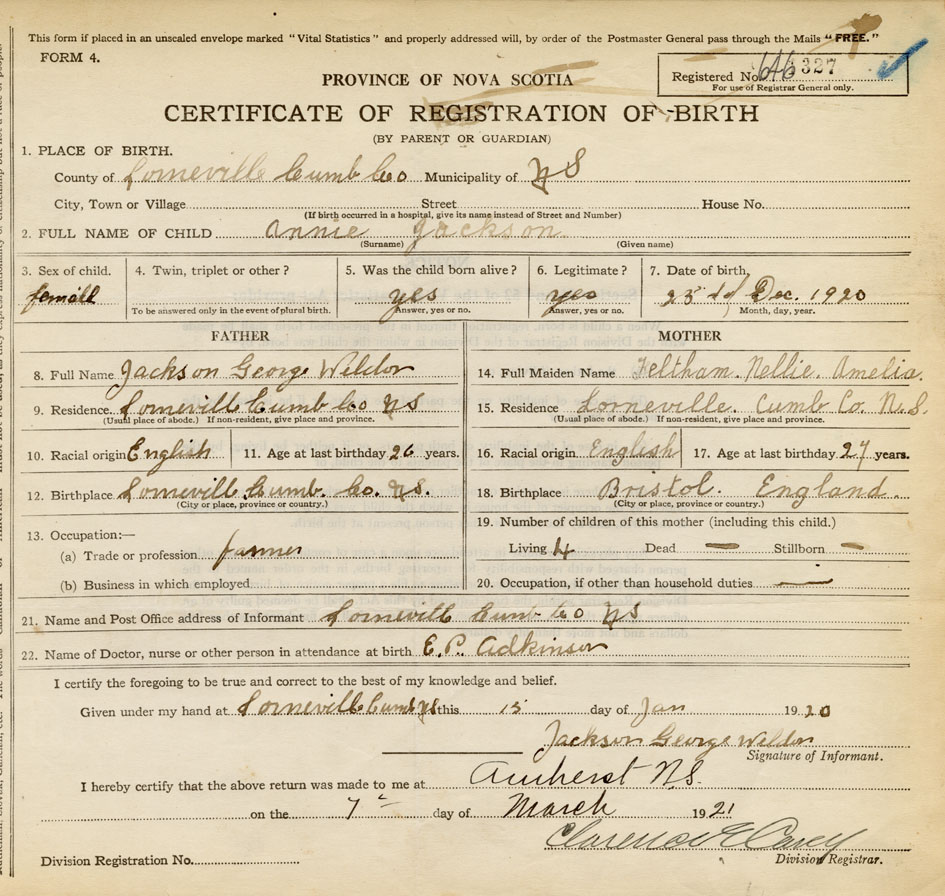 This form if placed in an unsealed envelope marked "Vital Statistics" and properly addressed will, by order of the Postmaster General pass through the Mails "FREE."
FORM 4.
PROVINCE OF NOVA SCOTIA
Registered No. 646327
For use of Registrar General only.
CERTIFICATE OF REGISTRATION OF BIRTH
(BY PARENT OR GUARDIAN)
1. PLACE OF BIRTH.
County of Lorneville Cumb Co Municipality of NS
City, Town or Village Street House No.
(If birth occurred in a hospital, give its name instead of Street and Number)
2. FULL NAME OF CHILD Annie Jackson
(Surname) (Given name)
3. Sex of child. 4. Twin, triplet or other? 5. Was the child born alive? 6. Legitimate? 7. Date of birth,
femall yes yes 25 of Dec. 1920
To be answered only in the event of plural birth. Answer, yes or no. Answer, yes or no. Month, day, year.
FATHER MOTHER
8. Full Name Jackson George Weldon
9. Residence. Lorneville Cumb Co NS
(Usual place of abode.) If non-resident, give place and province.
10. Racial origin English 11. Age at last birthday 26 years.
12. Birthplace Lornevill. Cumb. Co. NS.
(City or place, province or country.)
13. Occupation:—
(a) Trade or profession farmer
(b) Business in which employed
14. Full Maiden Name Feltham. Nellie. Amelia.
15. Residence Lorneville. Cumb Co. N.S.
(Usual place of abode.) If non-resident, give place and province.
16. Racial origin English 17. Age at last birthday 27 years.
18. Birthplace Bristol. England
(City or place, province or country.)
19. Number of children of this mother (including this child.)
Living 4 Dead — Stillborn —
20. Occupation, if other than household duties. —
21. Name and Post Office address of Informant Lornevill Cumb Co NS
22. Name of Doctor, nurse or other person in attendance at birth E. P. Adkinson
I certify the foregoing to be true and correct to the best of my knowledge and belief.
Given under my hand at Lorneville Cumb NS this 15 day of Jan 1920
Jackson George Weldon
Signature of Informant.
I hereby certify that the above return was made to me at Amherst N.S.
on the 7 day of March 1921
Clarence E Carey
Division Registrar.
Division Registration No.